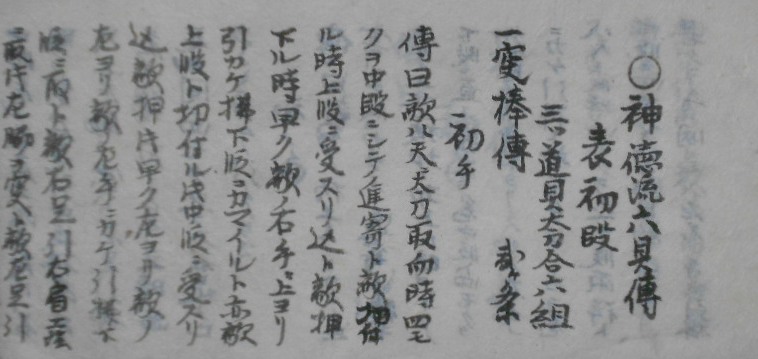 ○神徳流六具傳
表初段
三ツ道具太刀合六組
一変棒傳
初手
傳曰敵ハ天ニ太刀取向時四モ
クヲ中段ニシテノ進寄ト敵切付
ル時上段ニ受スリ込ト敵押
下ル時早ク敵ノ右手ヲ上ヨリ
引カケ拂下段ニカマイルト亦敵
上段ト切付ル此中段ニ受スリ
込敵押片早ク左ヨリ敵ノ
左ヨリ敵ノ左手ニカケ引拂下
段ニ取ト敵右足引右肩
段片左脇ヲ変ト敵左足引